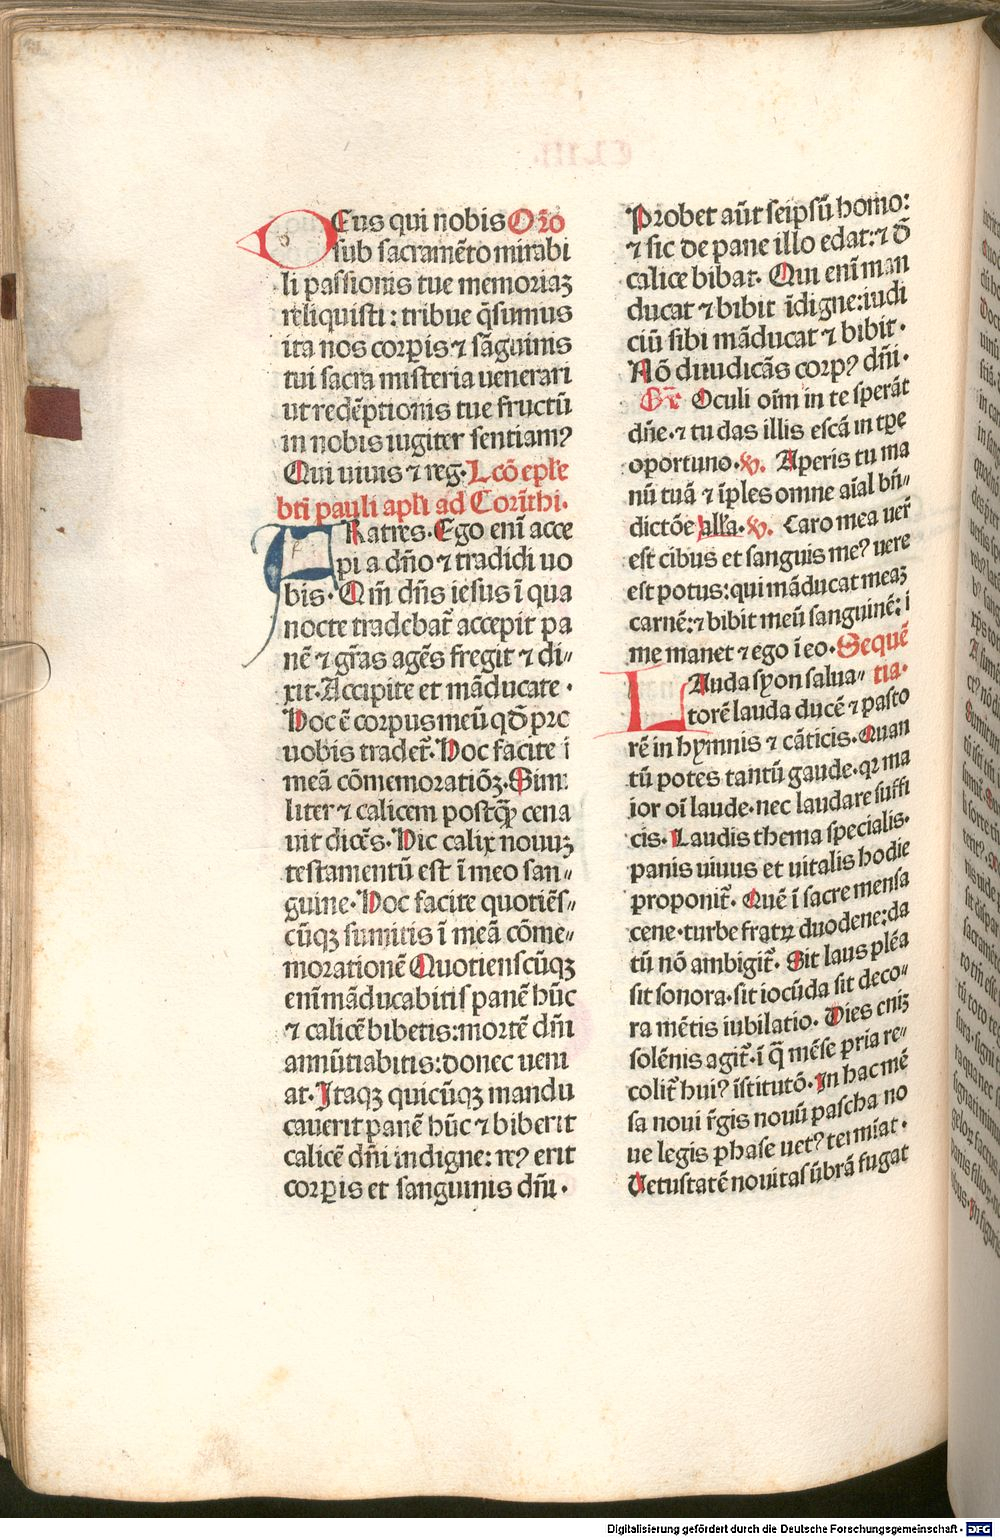 DEus qui nobis Oro
sub sacramēto mirabi
li passionis tue memoriaʒ
reliquisti: tribue q̄sumus
ita nos corꝑis ⁊ sāguinis
tui sacra misteria uenerari
ut redēptionis tue fructū
in nobis iugiter sentiamꝰ
Qui uiuis ⁊ reg. Lcō eple
bti pauli apli ad Corīthi.
FRatres. Ego enī acce
pi a dn̄o ⁊ tradidi uo
bis. Qm̄ dn̄s iesus ī qua
nocte tradebat̄ accepit pa
nē ⁊ gr̄as agēs fregit ⁊ di⸗
xit. Accipite et māducate.
Hoc ē corpus meū qđ pro
uobis tradet̄. Hoc facite ī
meā cōmemoratiōʒ. Simi
liter ⁊ calicem postq̄ꝫ cena
uit dicēs. Hic calix nouuʒ
testamentū est ī meo san⸗
guine. Hoc facite quotiēs⸗
cūqʒ sumitis ī meā cōme⸗
morationē Quotienscūqʒ
enī māducabitis panē hūc
⁊ calicē bibetis: mortē dn̄i
annūtiabitis: donec ueni
at. Itaqʒ quicūqʒ mandu
cauerit panē hūc ⁊ biberit
calicē dn̄i indigne: reꝰ erit
corꝑis et sanguinis dn̄i.
Probet aūt seipsū homo:
⁊ sic de pane illo edat: ⁊ đ
calice bibat. Qui enī man
ducat ⁊ bibit īdigne: iudi
ciū sibi māducat ⁊ bibit.
Nō diiudicās corpꝰ dn̄i.
Gr̄ Oculi oīm in te sperāt
dn̄e. ⁊ tu das illis escā in tꝑe
oportuno. ꝟ. Aperis tu ma
nū tuā ⁊ īples omne aīal bn̄⸗
dictōe alla. ꝟ. Caro mea uer̄
est cibus et sanguis meꝰ uere
est potus: qui māducat meaʒ
carnē: ⁊ bibit meū sanguinē: ī
me manet ⁊ ego ī eo. Sequē
LAuda syon salua⸗ tia.
torē lauda ducē ⁊ pasto
rē in hymnis ⁊ cāticis. Quan
tū potes tantū gaude. qꝛ ma
ior oī laude. nec laudare suffi
cis. Laudis thema specialis.
panis uiuus et uitalis hodie
proponit̄. Quē ī sacre mensa
cene. turbe fratꝝ duodene: da
tū nō ambigit̄. Sit laus plēa
sit sonora. sit iocūda sit deco⸗
ra mētis iubilatio. Dies eniʒ
solēnis agit̄. ī q̄ mēse pria re⸗
colit̄ huiꝰ īstitutō. In hac mē
sa noui r̄gis nouū pascha no
ue legis phase uetꝰ termīat.
Vetustatē nouitas ūbrā fugat
Digitalisierung gefördert durch die Deutsche Forschungsgemeinschaft - DFG